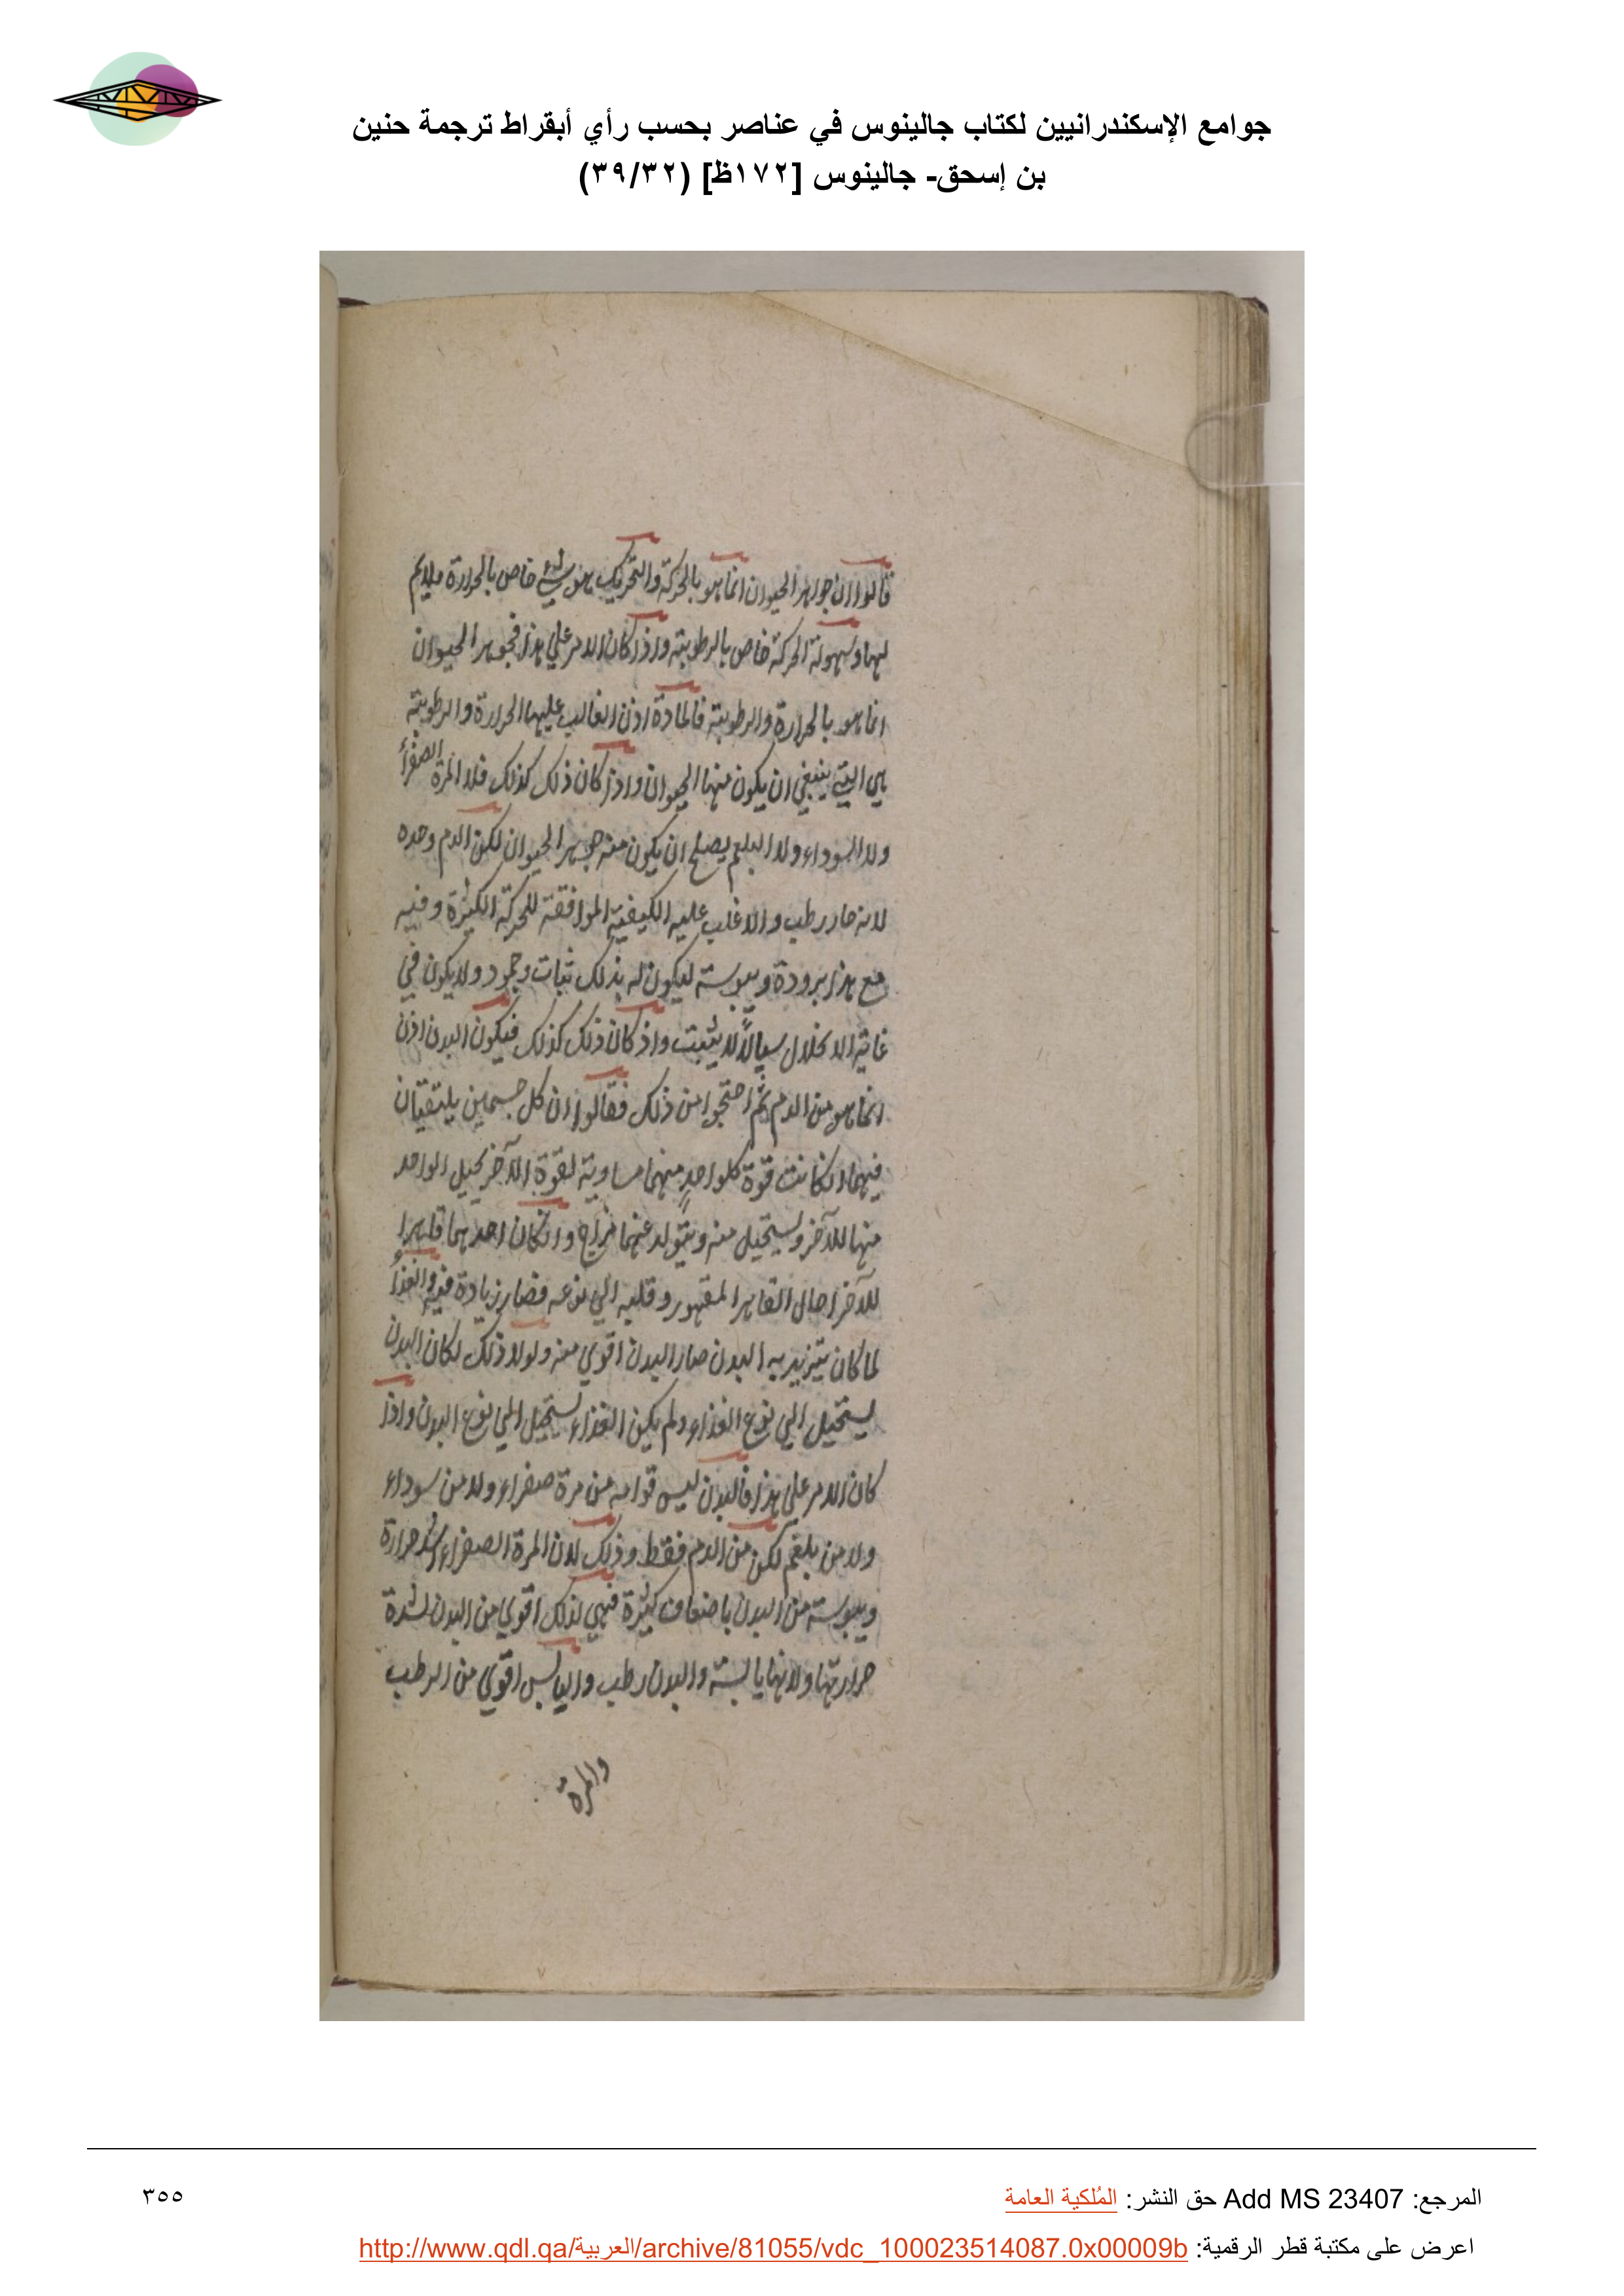 جوامع الإسكندرانيين لكتاب جالينوس في عناصر بحسب رأي أبقراط ترجمة حنين
بن إسحق- جالينوس [١٧٢ظ] (٣٩/٣٢)
قالوا ان جوهر الحيوان انما هو بالحركة والتحريك هو شيء خاص بالحرارة ملايم
لها وسهولة الحركة خاص بالرطوبة واذا كان الامر علي هذا فجوهر الحيوان
انما هو بالحرارة والرطوبة فالمادة اذن الغالب عليها الحرارة والرطوبة
هي التي ينبغي ان يكون منها الحيوان واذا كان ذلك كذلك فلا المرة الصفرأ
ولا السوداء ولا البلغم يصلح ان يكون منه جوهر الحيوان لكن الدم وحده
لانه حار رطب والاغلب عليه الكيفية الموافقة للحركة الكثيرة وفيه
مع هذا برودة ويبوسة ليكون له بذلك ثبات وجمود ولا يكون في
غاية الانحلال سيالاً لا يثبت واذ كان ذلك كذلك فيكون البدن اذن
انما هو من الدم ثم احتجوا من ذلك فقالوا ان كل جسمين يلتقيان
فيهما ان كانت قوة كلواحدٍ منهما مساوية لقوة الآخر يحيل الواحد
منها للآخر ويستحيل منه ويتولد عنهما مزاج وان كان احدهما قاهرا
للآخر احال القاهر المقهور وقلبه الي نوعه فصار زيادة فيه والغذأ
لما كان يتزيد به البدن صار البدن اقوي منه ولولا ذلك لكان البدن
يستحيل الي نوع الغذاء ولم يكن الغذاء يستحيل الي نوع البدن واذا
كان الامر علي هذا فالبدن ليس قوامه من مرة صفراء ولا من سوداء
ولا من بلغم لكن من الدم فقط وذلك لان المرة الصفراء اشد حرارة
ويبوسة من البدن باضعاف كثيرة فهي لذلك اقوي من البدن لشدة
حرارتها ولانها يابسة والبدن رطب واليابس اقوي من الرطب
والمرة
المرجع: Add MS 23407 حق النشر: المُلكية العامة
٣٥٥
اعرض على مكتبة قطر الرقمية: http://www.qdl.qa/العربية/archive/81055/vdc_100023514087.0x00009b